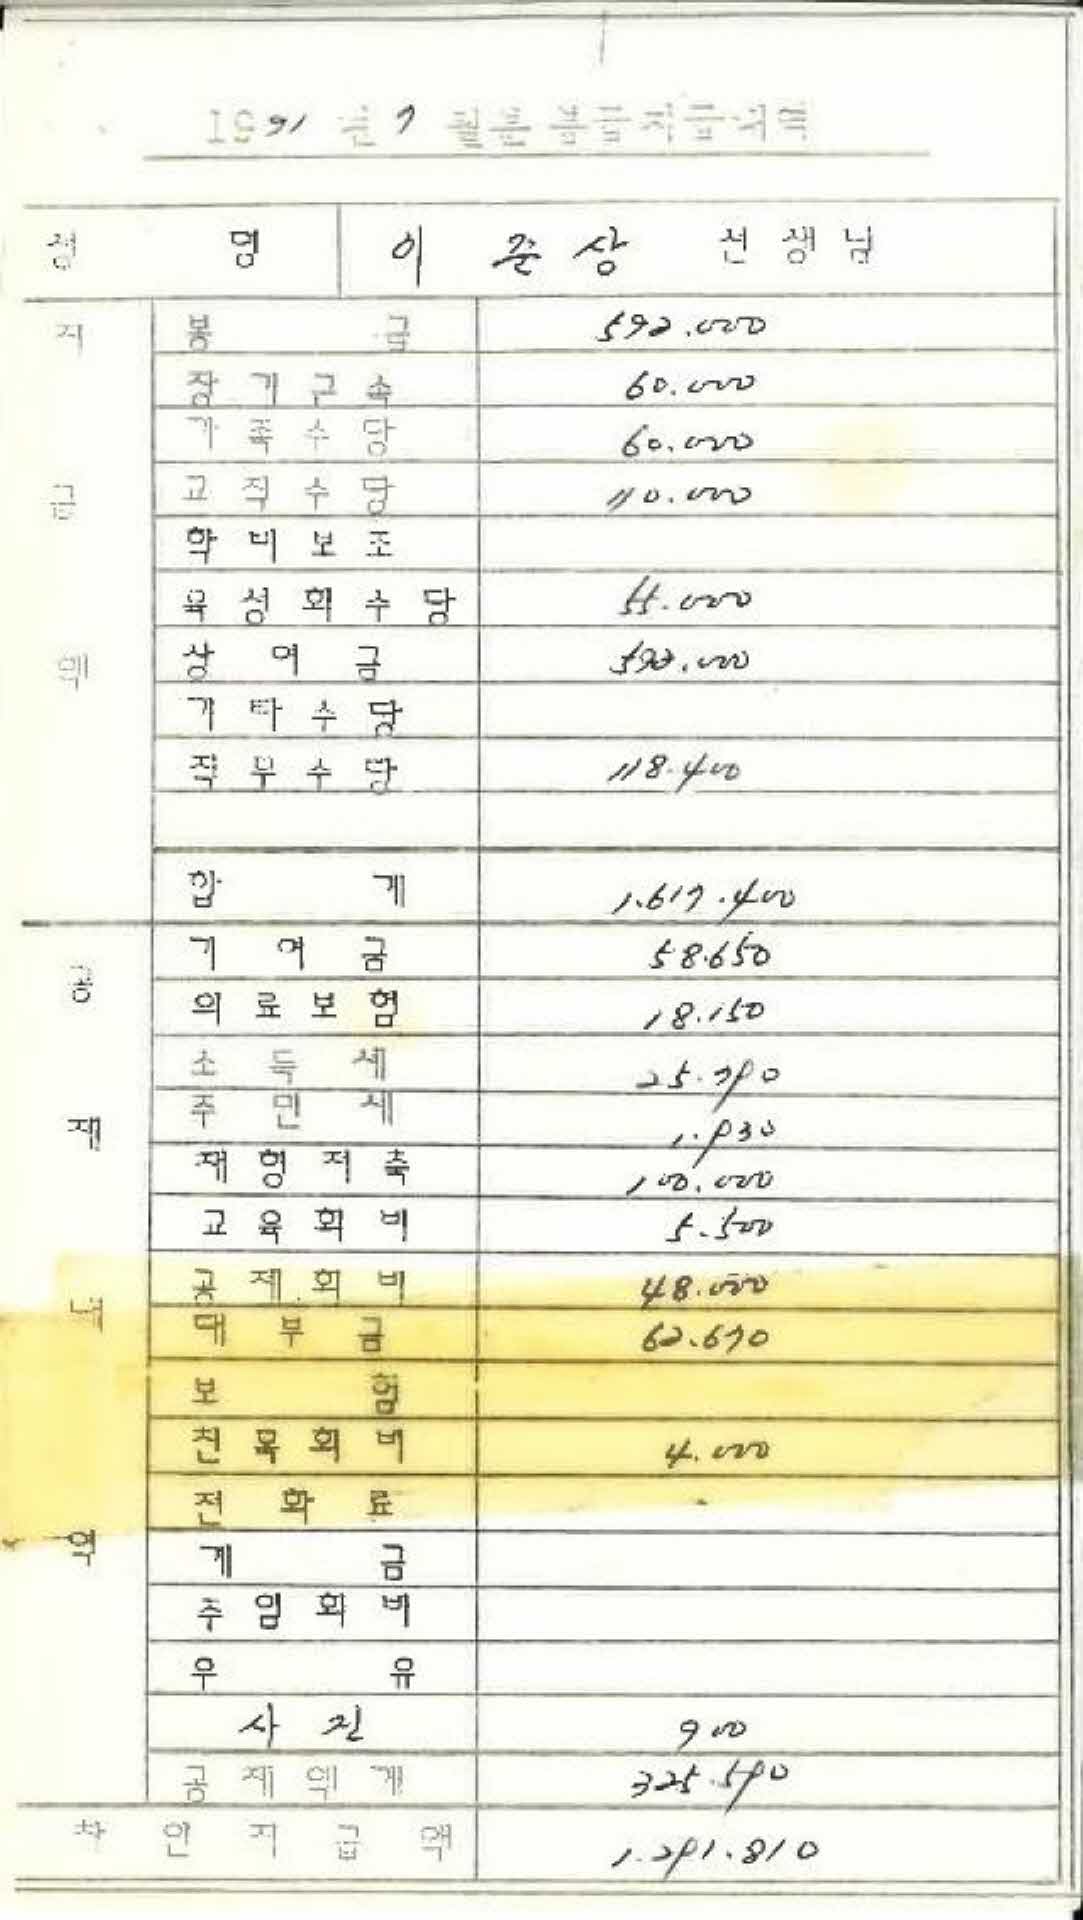 1991 년 7 월분 봉급지급
성 명 이 준 상 선 생 님
지 봉 급 592.000
장 기 근 속 60.000
가 족 수 당 60.000
급 교 직 수 당 110.000
학 비 보 조
육 성 회 수 당
액 상 여 금 592.000
기 타 수 당
직 무 수 당 118.400
합 계 1.617.400
공 기 여 금 58.650
의 료 보 험 18.150
소 득 세 25.790
제 주 민 세 1.930
재 형 저 축 100.000
교 육 회 비 5.500
공 제 회 비 48.000
대 부 금 62.670
보 험
친 목 회 비 4.000
전 화 료
계 금
주 임 회 비
우 유
사 진 900
공 제 액 계 325.590
차 인 지 급 액 1.291.810